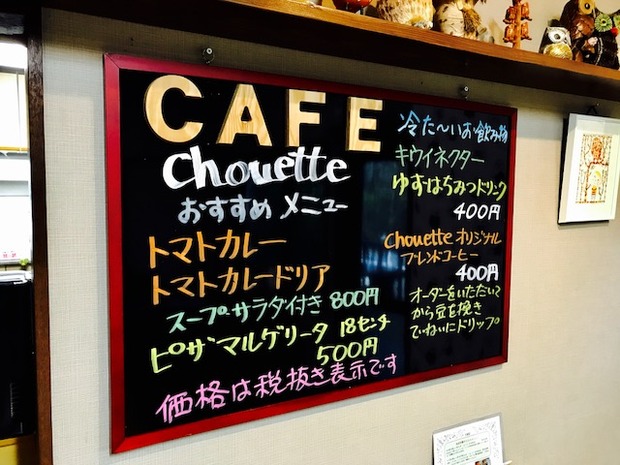 CAFE
Chouette
おすすめ メニュー
トマトカレー
トマトカレードリア
スープサラダ付き 800円
ピザマルゲリータ 18センチ
500円
価格は税抜き表示です
冷た〜いお飲み物
キウイネクター
ゆずはちみつドリンク
400円
Chouette オリジナル
ブレンドコーヒー
400円
オーダーをいただいて
から豆を挽き
ていねいにドリップ